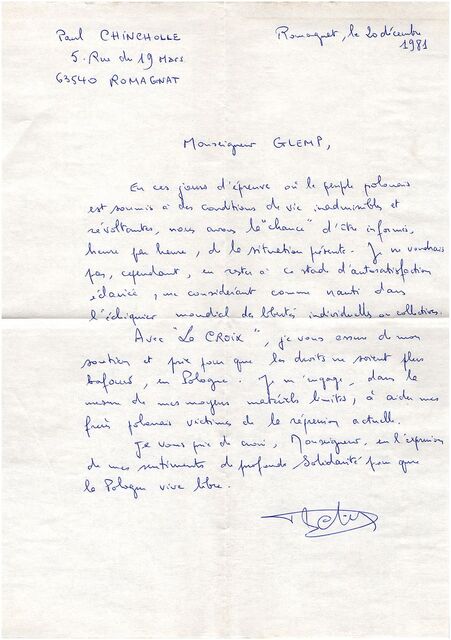 Paul CHINCHOLLE
5 Rue du 19 Mars
63540 ROMAGNAT
Romagnat, le 20 décembre
1981
Monseigneur GLEMP,
En ces jours d'épreuve où le peuple polonais
est soumis à des conditions de vie inadmissibles et
révoltantes, nous avons la "chance" d'être informés,
heure par heure, de la situation présente. Je ne voudrais
pas, cependant, en rester à ce stade d'autosatisfaction
, me considérant comme nanti dans
l'échiquier mondial des libertés individuelles ou collectives.
Avec "La CROIX", je vous assure de mon
soutien et prie pour que les droits ne soient plus
bafoués, en Pologne. Je m'engage, dans la
mesure de mes moyens matériels limités, à aider mes
frères polonais victimes de la répression actuelle.
Je vous prie de croire, Monseigneur, en l'expression
de mes sentiments de profonde Solidarité pour que
la Pologne vive libre.